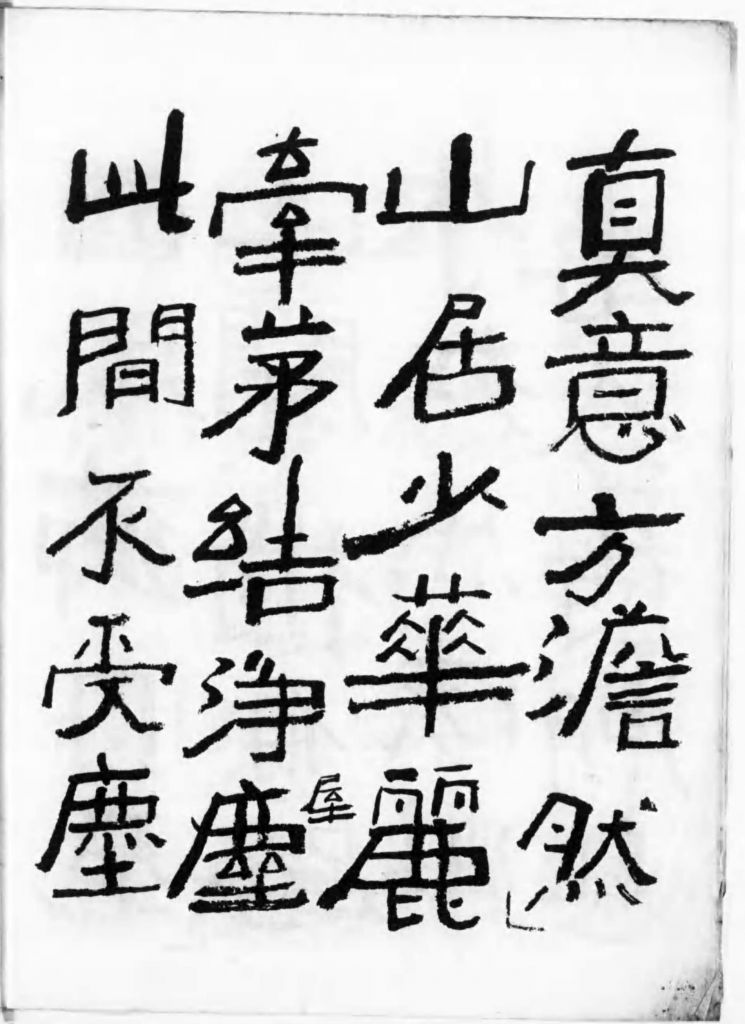 真意方澹然
山居少華麗
牽茅結淨塵
屋
此間不受塵